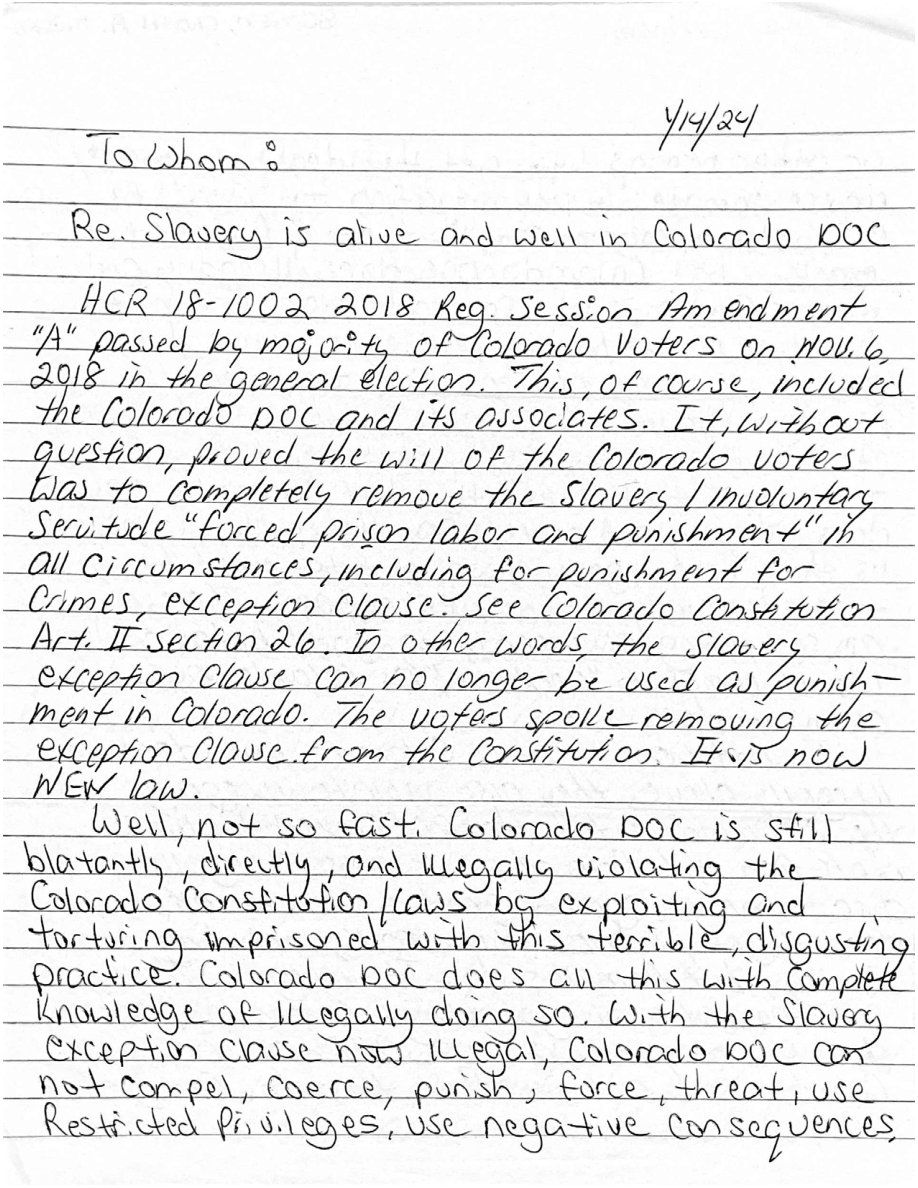 1/14/24
To Whom:
Re. Slavery is alive and well in Colorado DOC
HCR 18-1002 2018 Reg. Session Amendment
"A" passed by majority of Colorado Voters on NOV. 6,
2018 in the general election. This, of course, included
the Colorado DOC and its associates. It, without
question, proved the will of the Colorado voters
was to completely remove the Slavery / involuntary
Servitude "forced prison labor and punishment" in
all circumstances, including for punishment for
Crimes, exception Clause. See Colorado Constitution
Art. II section 26. In other words, the Slavery
exception Clause can no longer be used as punish-
ment in Colorado. The voters spoke removing the
exception Clause from the Constitution. It is now
NEW law.
Well, not so fast. Colorado DOC is still
blatantly, directly, and illegally violating the
Colorado Constitution/laws by exploiting and
torturing imprisoned with this terrible, disgusting
practice. Colorado DOC does all this with complete
knowledge of illegally doing so. With the Slavery
exception clause now illegal, Colorado DOC can
not compel, coerce, punish, force, threat, use
Restricted Privileges, use negative consequences,